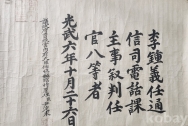 李鍾義任通
信司電話課
主事敘判任
官八等者
光武六年十月二十六日